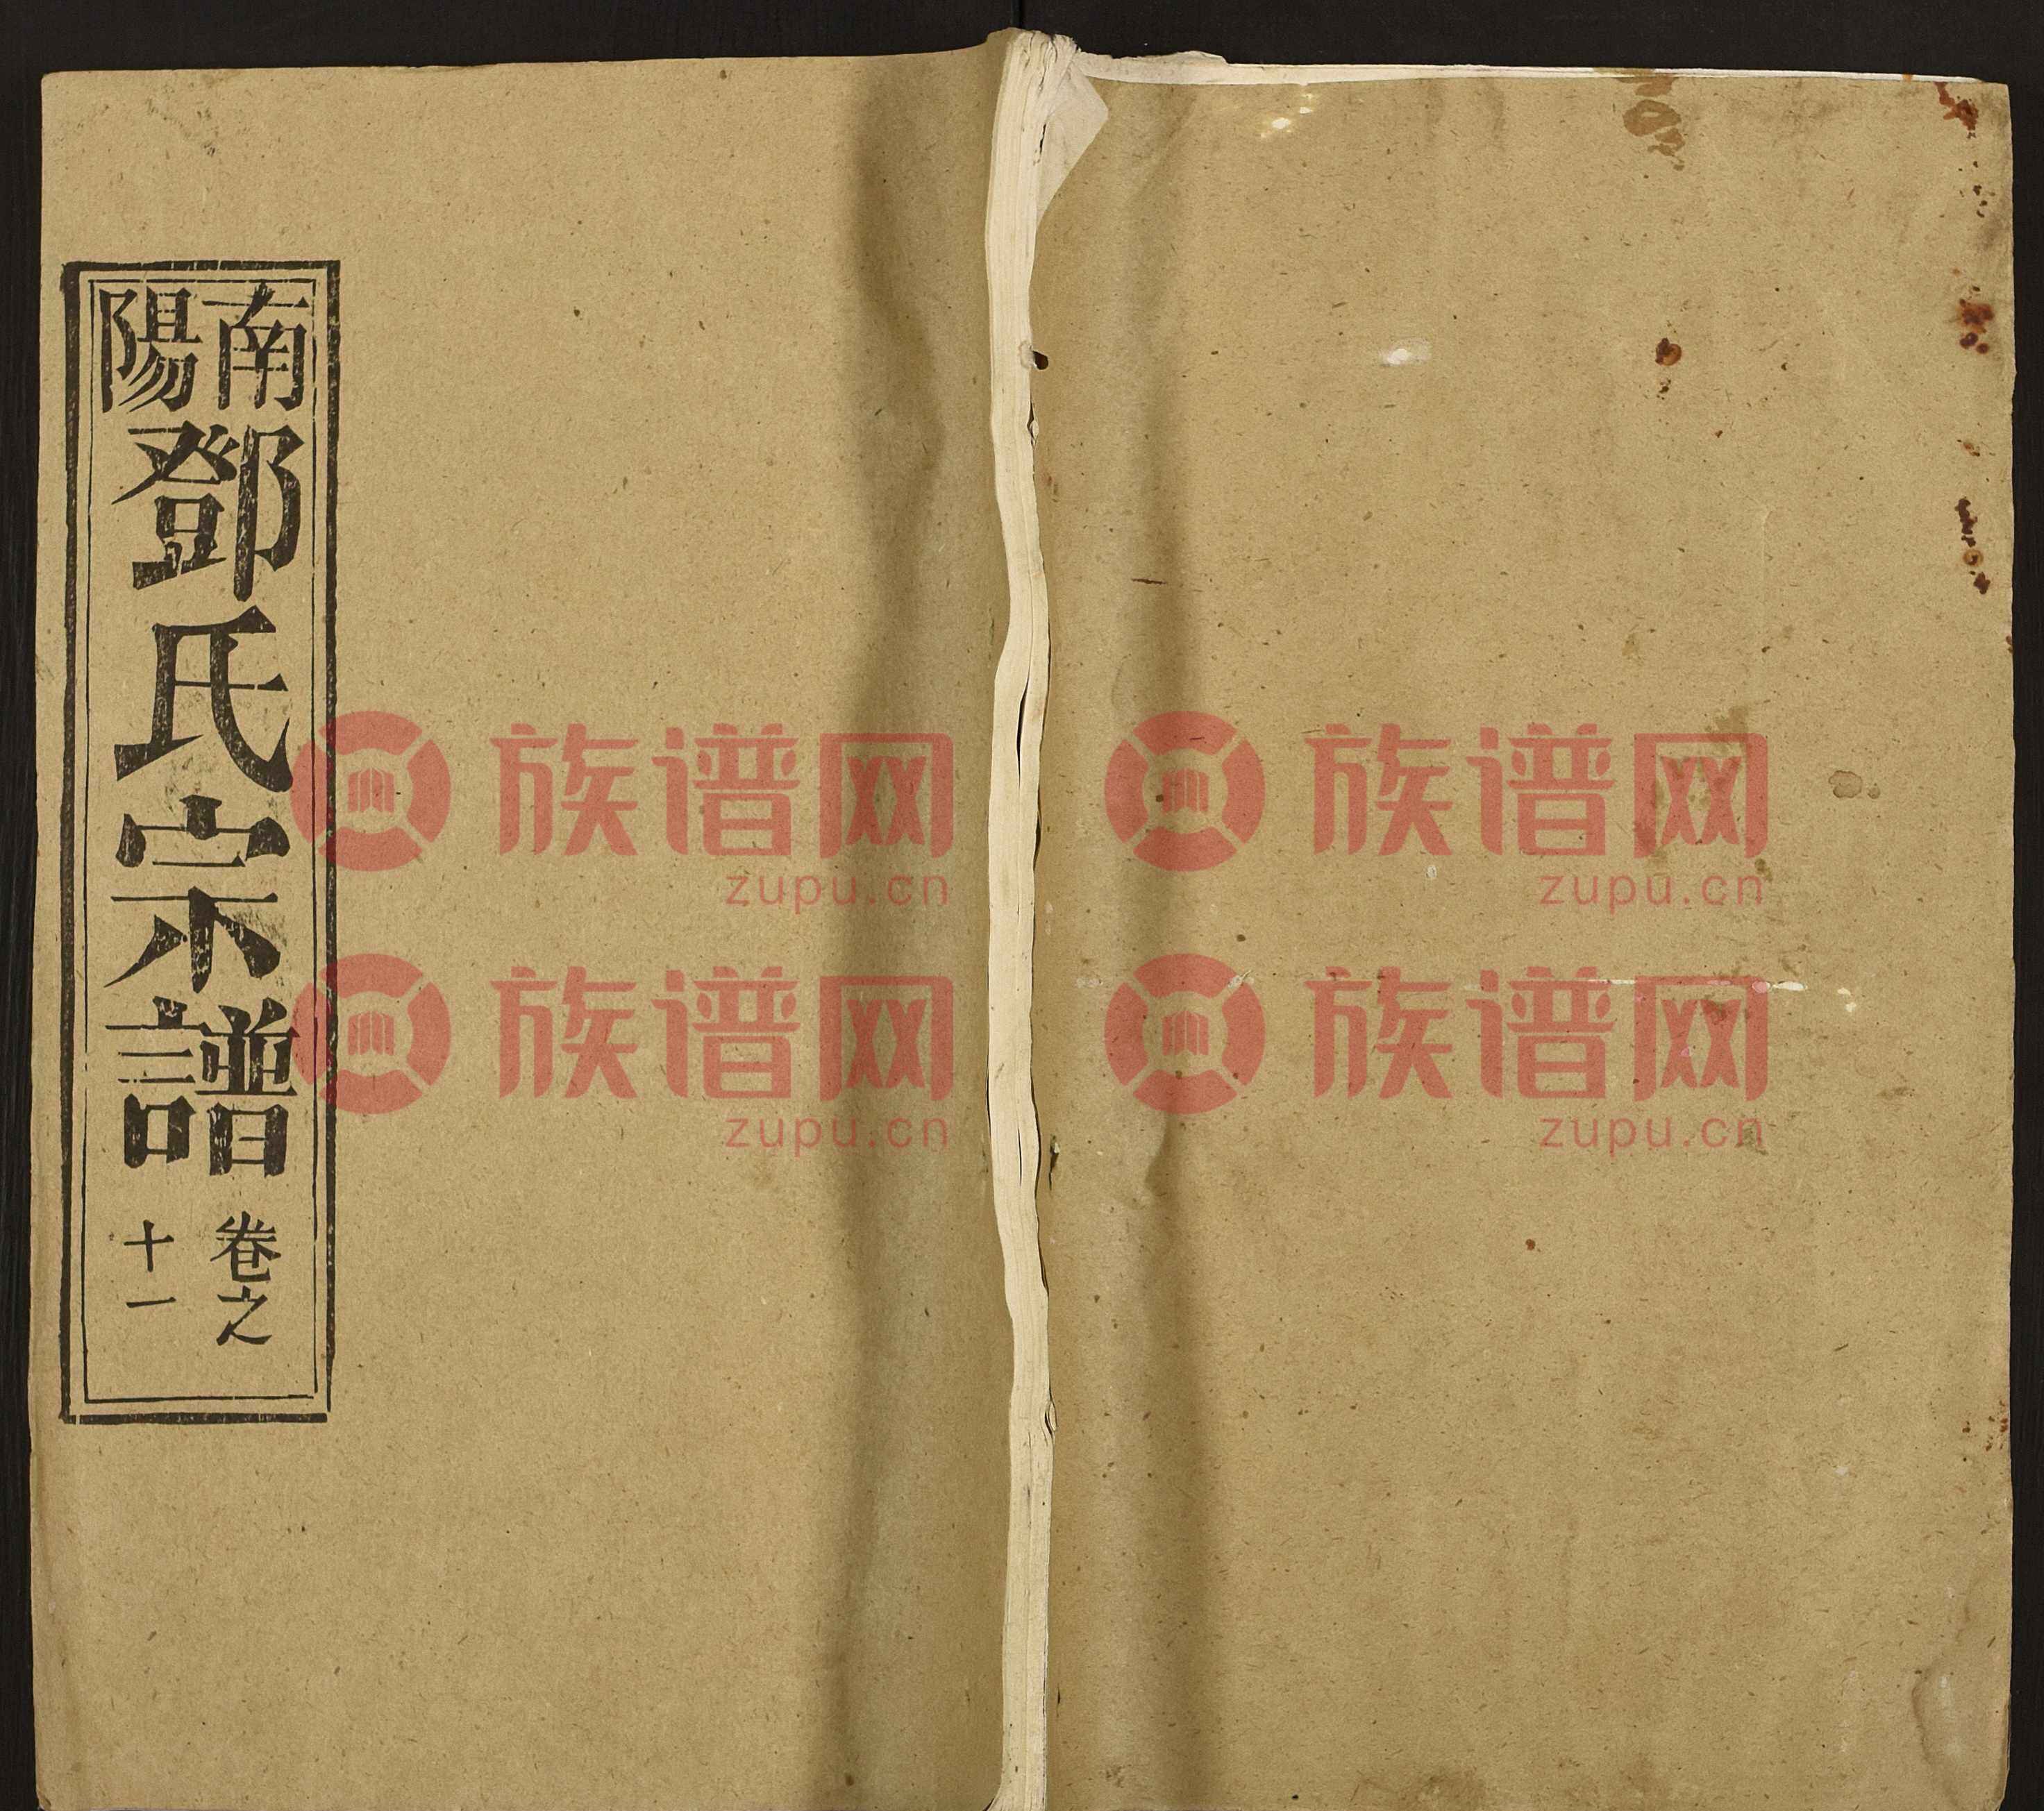 南陽鄧氏宗譜
卷之十一
族谱网
zupu.cn
族谱网
zupu.cn
族谱网
zupu.cn
族谱网
zupu.cn